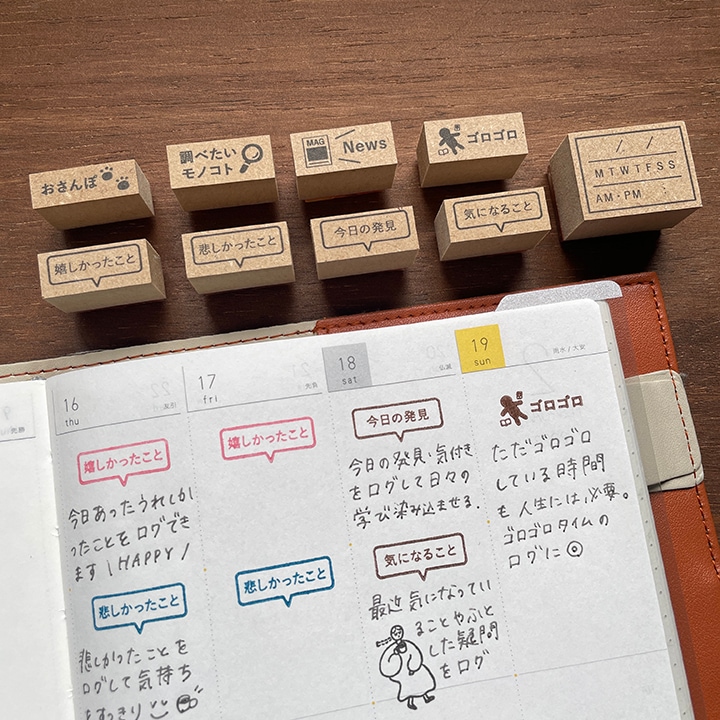 おさんぽ
調べたい
モノコト
MAG
News
ゴロゴロ
/ /
M T W T F S S
AM・PM :
嬉しかったこと
悲しかったこと
今日の発見
気になること
先勝
16
thu
友引
17
fri
先負
18
sat
仏滅
19
sun
雨水/大安
嬉しかったこと
今日あったうれしか
ったことをログでき
ます \HAPPY/
悲しかったこと
悲しかったことを
ログして気持ち
をすっきり
嬉しかったこと
悲しかったこと
今日の発見
今日の発見・気付き
をログして日々の
学び染み込ませる.
気になること
最近気になってい
ることやふと
した疑問
をログ
ゴロゴロ
ただゴロゴロ
している時間
も人生には、必要。
ゴロゴロタイムの
ログに